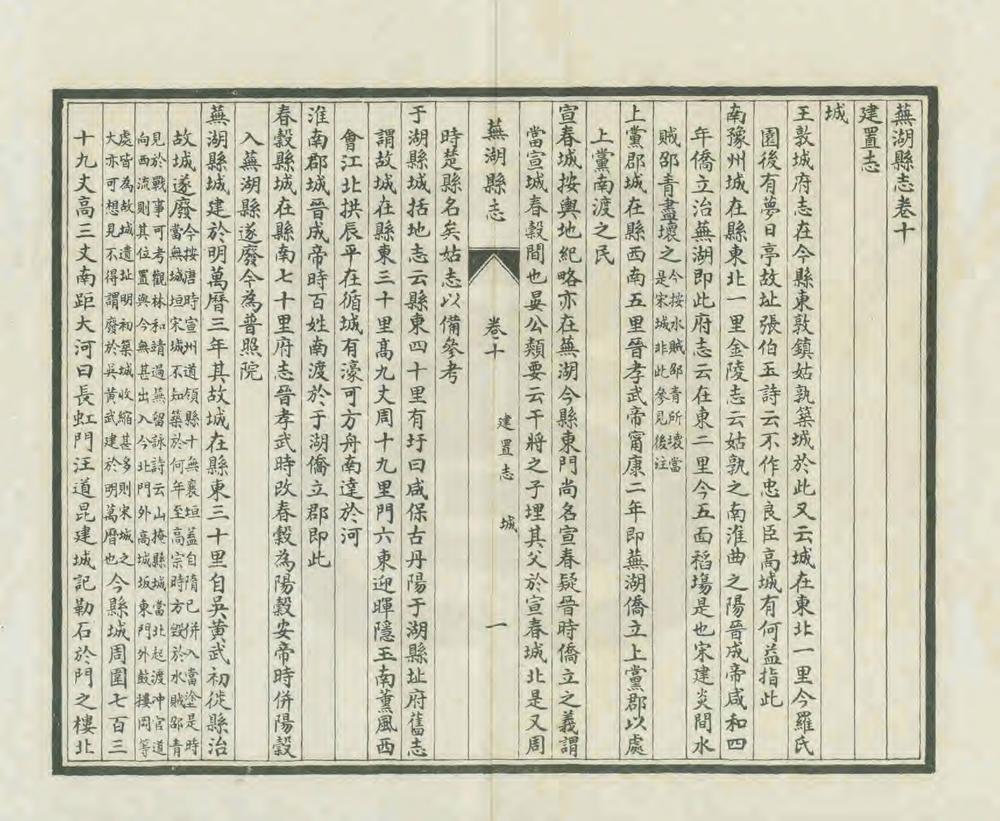 蕪湖縣志卷十
建置志
城
王敦城府志在今縣東敦鎮姑孰築城於此又云城在東北一里今羅氏
園後有夢日亭故址張伯玉詩云不作忠良臣高城有何益指此
南豫州城在縣東北一里金陵志云姑孰之南淮曲之陽晉成帝咸和四
年僑立治蕪湖即此府志云在東二里今五面稻塲是也宋建炎間水
賊邵青盡壞之今按水賊邵青所壞當
是宋城非此參見後注
上黨郡城在縣西南五里晉孝武帝甯康二年即蕪湖僑立上黨郡以處
上黨南渡之民
宣春城按輿地紀略亦在蕪湖今縣東門尚名宣春疑晉時僑立之義謂
當宣城春穀間也晏公類要云干將之子埋其父於宣春城北是又周
時楚縣名矣姑志以備參考
蕪湖縣志
卷十
建置志 城
一
于湖縣城括地志云縣東四十里有圩曰咸保古丹陽于湖縣址府舊志
謂故城在縣東三十里高九丈周十九里門六東迎暉隱玉南薰風西
會江北拱辰平在循城有濠可方舟南達於河
淮南郡城晉成帝時百姓南渡於于湖僑立郡即此
春穀縣城在縣南七十里府志晉孝武時改春穀為陽穀安帝時併陽穀
入蕪湖縣遂廢今為普照院
蕪湖縣城建於明萬曆三年其故城在縣東三十里自吳黃武初徙縣治
故城遂廢今按唐時宣州道領縣十無襄垣蓋自隋已併入當塗是時
當無城垣宋城不知築於何年至高宗時方毀於水賊邵青
見於戰事可考觀林和靖過蕪留詠詩云山掩縣城當北起渡冲官道
向西流則其位置與今無甚出入今北門外高城坂東門外鼓樓岡等
處皆為故城遺址明初築城收縮甚多則宋城之
大亦可想見不得謂廢於吳黃武建於明萬曆也今縣城周圍七百三
十九丈高三丈南距大河曰長虹門汪道昆建城記勒石於門之樓北